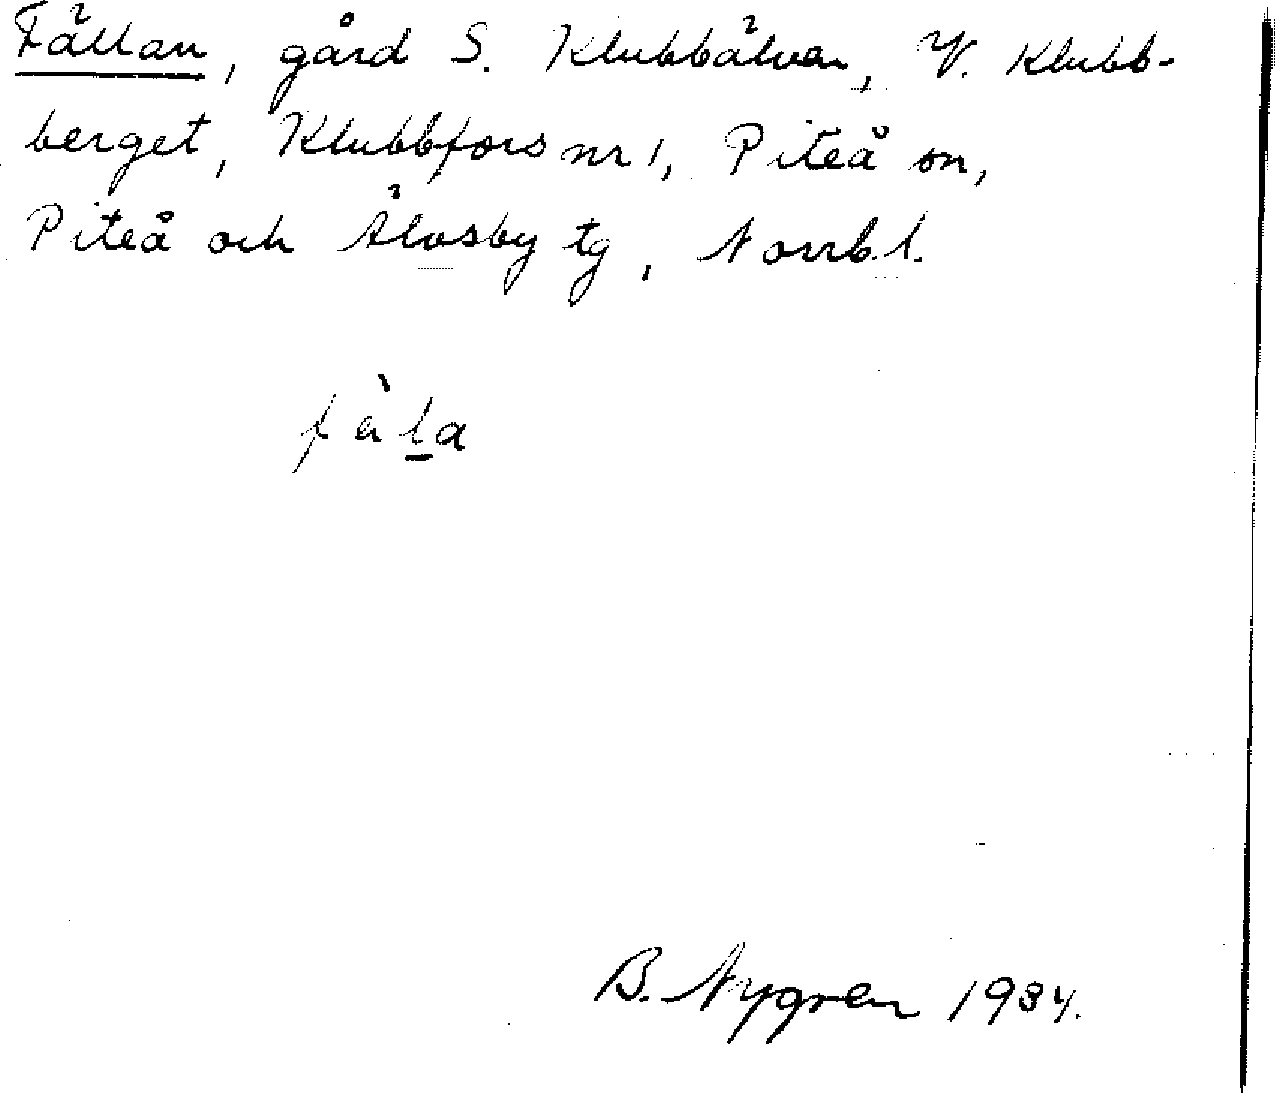 Fällan, gård S. Klubbälven, V. Klubb-
berget, Klubbfors nr 1, Piteå sn,
Piteå och Älvsby tg, Norrb.l.
fὰla
B. Nygren 1934.